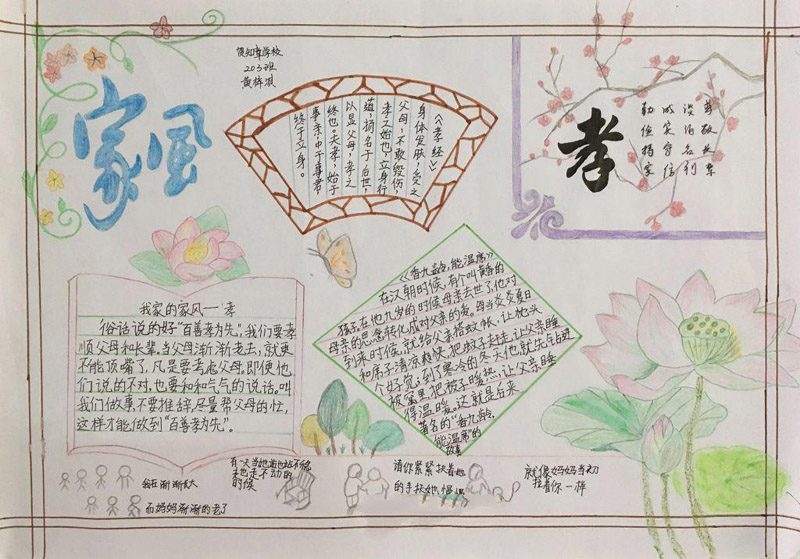 家风
贺知章学校
203班
《孝经》
身体发肤,受之
父母,不敢毁伤,
孝之始也,立身行
道,扬名于后世,
以显父母,孝之
终也。夫孝,始于
事亲,中于事君,
终于立身。
孝
尊敬长辈
淡泊名利
诚实守信
勤俭持家
我家的家风一孝
俗话说的好"百善孝为先"。我们要孝
顺父母和长辈。当父母渐渐老去,就更
不能顶嘴了,凡是要考虑父母,即使他
们说的不对,也要和和气气的说话。叫
我们做事,不要推辞,尽量帮父母的忙,
这样才能做到"百善孝为先"。
《香九龄,能温席》
在汉朝时候,有个叫黄香的
孩子,在他九岁的时候母亲去世了,他对
母亲的思念转化成对父亲的爱。每当炎炎夏日
到来时候,就给父亲搭蚊帐,让枕头
和席子清凉爽快,把蚊子赶走,让父亲睡
个好觉;到了寒冷的冬天,他就先钻进
被窝里,把被子暖热,让父亲睡
得温暖。这就是后来
著名的"香九龄,
能温席"的
故事
会在渐渐长大
而妈妈渐渐的老了
有一天当她老也站不稳
走不动的
的时候
请你紧紧扶着她
的手
就像妈妈当初
拉着你一样